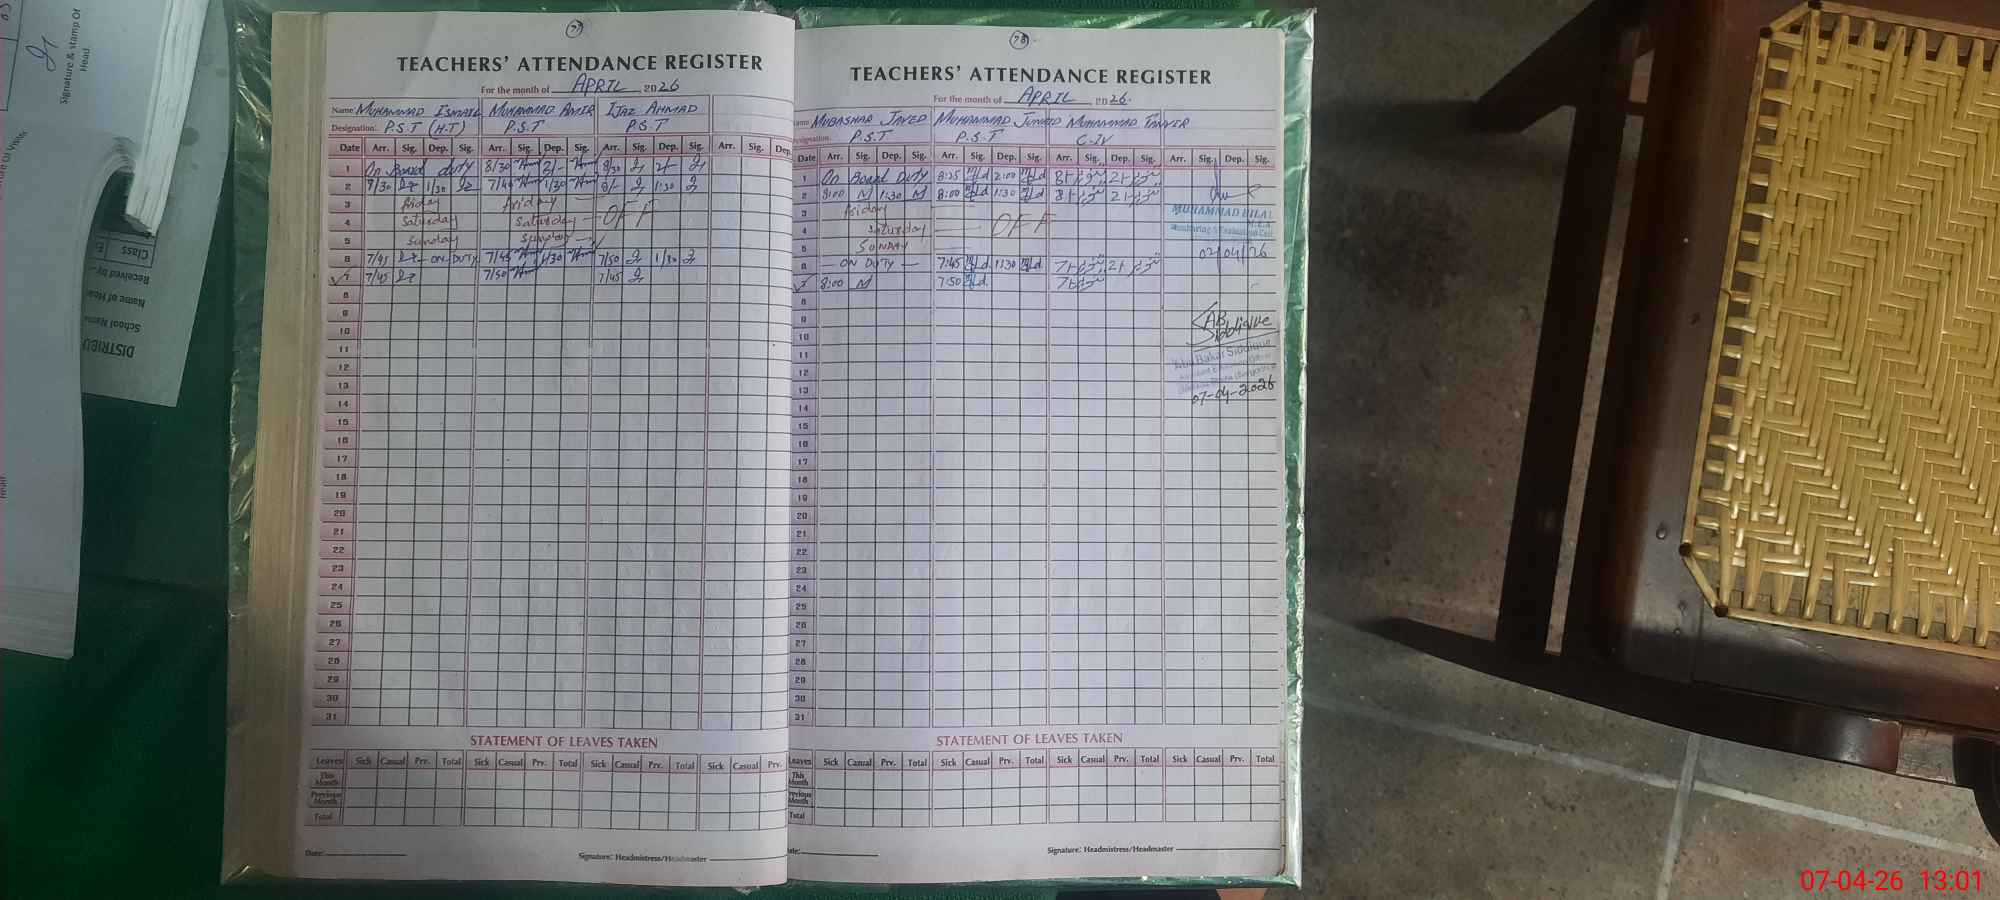 77
TEACHERS' ATTENDANCE REGISTER
For the month of APRIL, 2026
Name: MUHAMMAD ISMAIL MUHAMMAD AMIR IJAZ AHMAD
Designation: P.S.T (H.T) P.S.T P.S.T
Date Arr. Sig. Dep. Sig. Arr. Sig. Dep. Sig. Arr. Sig. Dep. Sig. Arr. Sig. Dep.
1 On Board duty 8/30 2/- 8/30 2/-
2 7/30 1/30 7/45 1/30 8/- 1:30
3 Friday Friday
4 Saturday Saturday OFF
5 Sunday Sunday
6 7/45 ON DUTY 7/45 1/30 7/50 1/30
7 7/45 7/50 7/45
8
9
10
11
12
13
14
15
16
17
18
19
20
21
22
23
24
25
26
27
28
29
30
31
STATEMENT OF LEAVES TAKEN
Leaves Sick Casual Prv. Total Sick Casual Prv. Total Sick Casual Prv. Total Sick Casual Prv.
This Month
Previous Month
Total
Date: Signature: Headmistress/Headmaster
78
TEACHERS' ATTENDANCE REGISTER
For the month of APRIL 2026.
MUBASHAR JAVED MUHAMMAD JUNAID MUHAMMAD TANVIR
P.S.T P.S.T C-IV
Date Arr. Sig. Dep. Sig. Arr. Sig. Dep. Sig. Arr. Sig. Dep. Sig. Arr. Sig. Dep. Sig.
1 On Board Duty 8:25 2:00 8/- 2/-
2 8:00 M 1:30 M 8:00 1:30 8/- 2/-
3 Friday
4 Saturday OFF
5 SUNDAY
6 ON DUTY 7:45 1:30 7/- 2/-
7 8:00 M 7:50
8
9
10
11
12
13
14
15
16
17
18
19
20
21
22
23
24
25
26
27
28
29
30
31
MUHAMMAD BILAL
M.E.A
02/04/26
AB Siddique
Abu Bakar Siddique
07-04-2026
STATEMENT OF LEAVES TAKEN
Leaves Sick Casual Prv. Total Sick Casual Prv. Total Sick Casual Prv. Total Sick Casual Prv. Total
This Month
Previous Month
Total
Date: Signature: Headmistress/Headmaster
Signature & stamp Of Head
Class
Received by:-
Name of Head
School Name
DISTRIBU
07-04-26 13:01